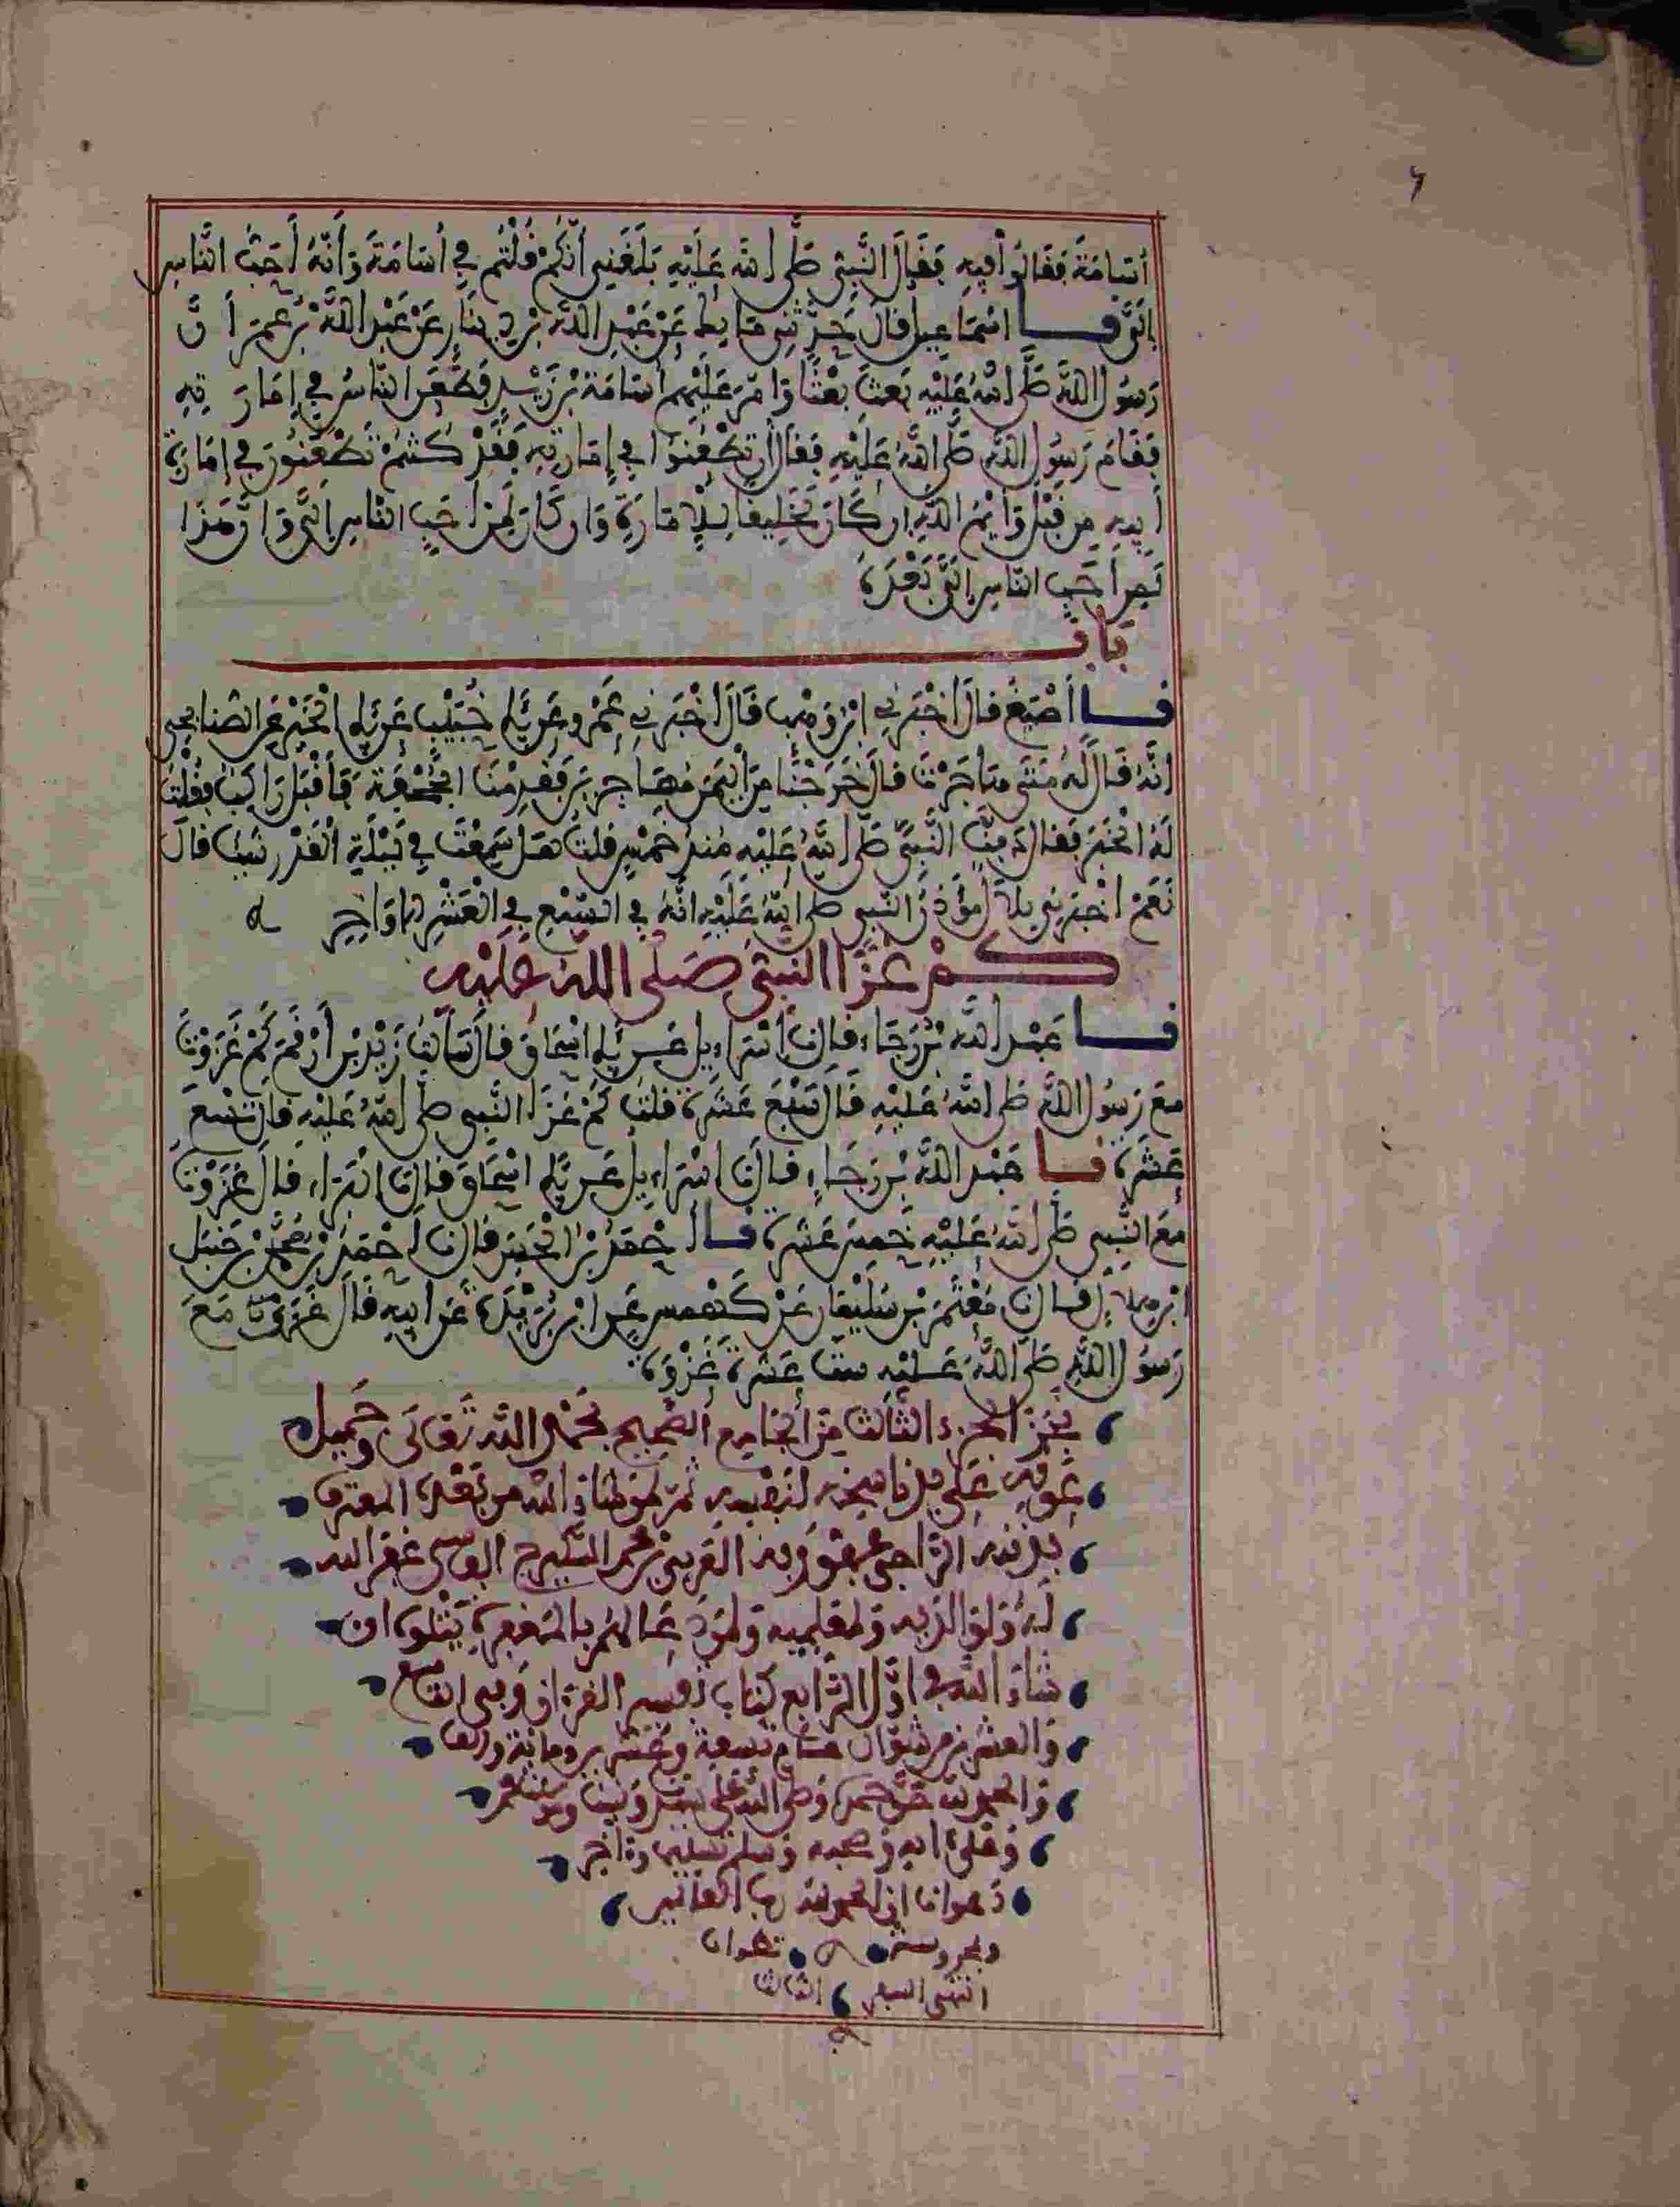 أُسَامَةَ فَقَالُوا فِيهِ فَقَالَ النَّبِيُّ صَلَّى اللهُ عَلَيْهِ بَلَغَنِي أَنَّكُمْ قُلْتُمْ فِي أُسَامَةَ وَأَنَّهُ أَحَبُّ النَّاسِ
إِلَيَّ نا إِسْمَاعِيلُ قَالَ حَدَّثَنِي مَالِكٌ عَنْ عَبْدِ اللَّهِ بْنِ دِينَارٍ عَنْ عَبْدِ اللَّهِ بْنِ عُمَرَ أَنَّ
رَسُولَ اللَّهِ صَلَّى اللهُ عَلَيْهِ بَعَثَ بَعْثًا وَأَمَّرَ عَلَيْهِمْ أُسَامَةَ بْنَ زَيْدٍ فَطَعَنَ النَّاسُ فِي إِمَارَتِهِ
فَقَامَ رَسُولُ اللَّهِ صَلَّى اللهُ عَلَيْهِ فَقَالَ إِنْ تَطْعَنُوا فِي إِمَارَتِهِ فَقَدْ كُنْتُمْ تَطْعَنُونَ فِي إِمَارَةِ
أَبِيهِ مِن قَبْلُ وَايْمُ اللَّهِ إِن كَانَ لَخَلِيقًا لِلْإِمَارَةِ وَإِن كَانَ لَمِنْ أَحَبِّ النَّاسِ إِلَيَّ وَإِنَّ هَذَا
لَمِنْ أَحَبِّ النَّاسِ إِلَيَّ بَعْدَهُ
بَابٌ
نا أَصْبَغُ قَالَ أَخْبَرَنِي ابْنُ وَهْبٍ قَالَ أَخْبَرَنِي عَمْرٌو عَنِ ابْنِ أَبِي حَبِيبٍ عَنْ أَبِي الْخَيْرِ عَنِ الصُّنَابِحِيِّ
أَنَّهُ قَالَ لَهُ مَتَى هَاجَرْتَ قَالَ خَرَجْنَا مِنَ الْيَمَنِ مُهَاجِرِينَ فَقَدِمْنَا الْجُحْفَةَ فَأَقْبَلَ رَاكِبٌ فَقُلْتُ
لَهُ الْخَبَرَ فَقَالَ دَفَنَّا النَّبِيَّ صَلَّى اللهُ عَلَيْهِ مُنْذُ خَمْسٍ قُلْتُ هَلْ سَمِعْتَ فِي لَيْلَةِ الْقَدْرِ شَيْئًا قَالَ
نَعَمْ أَخْبَرَنِي بِلَالٌ مُؤَذِّنُ النَّبِيِّ صَلَّى اللهُ عَلَيْهِ أَنَّهُ فِي السَّبْعِ فِي الْعَشْرِ الْأَوَاخِرِ ه
كَمْ غَزَا النَّبِيُّ صَلَّى اللهُ عَلَيْهِ
نا عَبْدُ اللَّهِ بْنُ رَجَاءٍ قَالَ نا إِسْرَاءِيلُ عَنْ أَبِي إِسْحَاقَ قَالَ سَأَلْتُ زَيْدَ بْنَ أَرْقَمَ كَمْ غَزَوْتَ
مَعَ رَسُولِ اللَّهِ صَلَّى اللهُ عَلَيْهِ قَالَ سَبْعَ عَشْرَةَ قُلْتُ كَمْ غَزَا النَّبِيُّ صَلَّى اللهُ عَلَيْهِ قَالَ تِسْعَ
عَشْرَةَ نا عَبْدُ اللَّهِ بْنُ رَجَاءٍ قَالَ نا إِسْرَاءِيلُ عَنْ أَبِي إِسْحَاقَ قَالَ نا الْبَرَاءُ قَالَ غَزَوْتُ
مَعَ النَّبِيِّ صَلَّى اللهُ عَلَيْهِ خَمْسَ عَشْرَةَ نا أَحْمَدُ بْنُ الْحَسَنِ قَالَ نا أَحْمَدُ بْنُ مُحَمَّدِ بْنِ حَنْبَلِ
ابْنِ هِلَالٍ قَالَ نا مُعْتَمِرُ بْنُ سُلَيْمَانَ عَنْ كَهْمَسٍ عَنِ ابْنِ بُرَيْدَةَ عَنْ أَبِيهِ قَالَ غَزَوْتُ مَعَ
رَسُولِ اللَّهِ صَلَّى اللهُ عَلَيْهِ سِتَّ عَشْرَةَ غَزْوَةً
نجز الجزء الثالث من الجامع الصحيح بحمد الله تعالى وجميل
عونه على يد ناسخه لنفسه ثم لمن شاء الله من بعده المعترف
بذنبه الراجي عفو ربه العربي بن محمد الفاسي غفر الله
له ولوالديه ولمعلميه ولمن دعا لهم بالمغفرة يتلوه إن
شاء الله في أول الرابع كتاب تفسير القرآن وفي التاسع
والعشرين من شوال عام تسعة وعشرين ومائة وألف
والحمد لله حق حمده وصلى الله على
وعلى آله وصحبه وسلم تسليما وآخر
دعوانا أن الحمد لله رب العالمين
تطوان
انتهى السفر الثالث